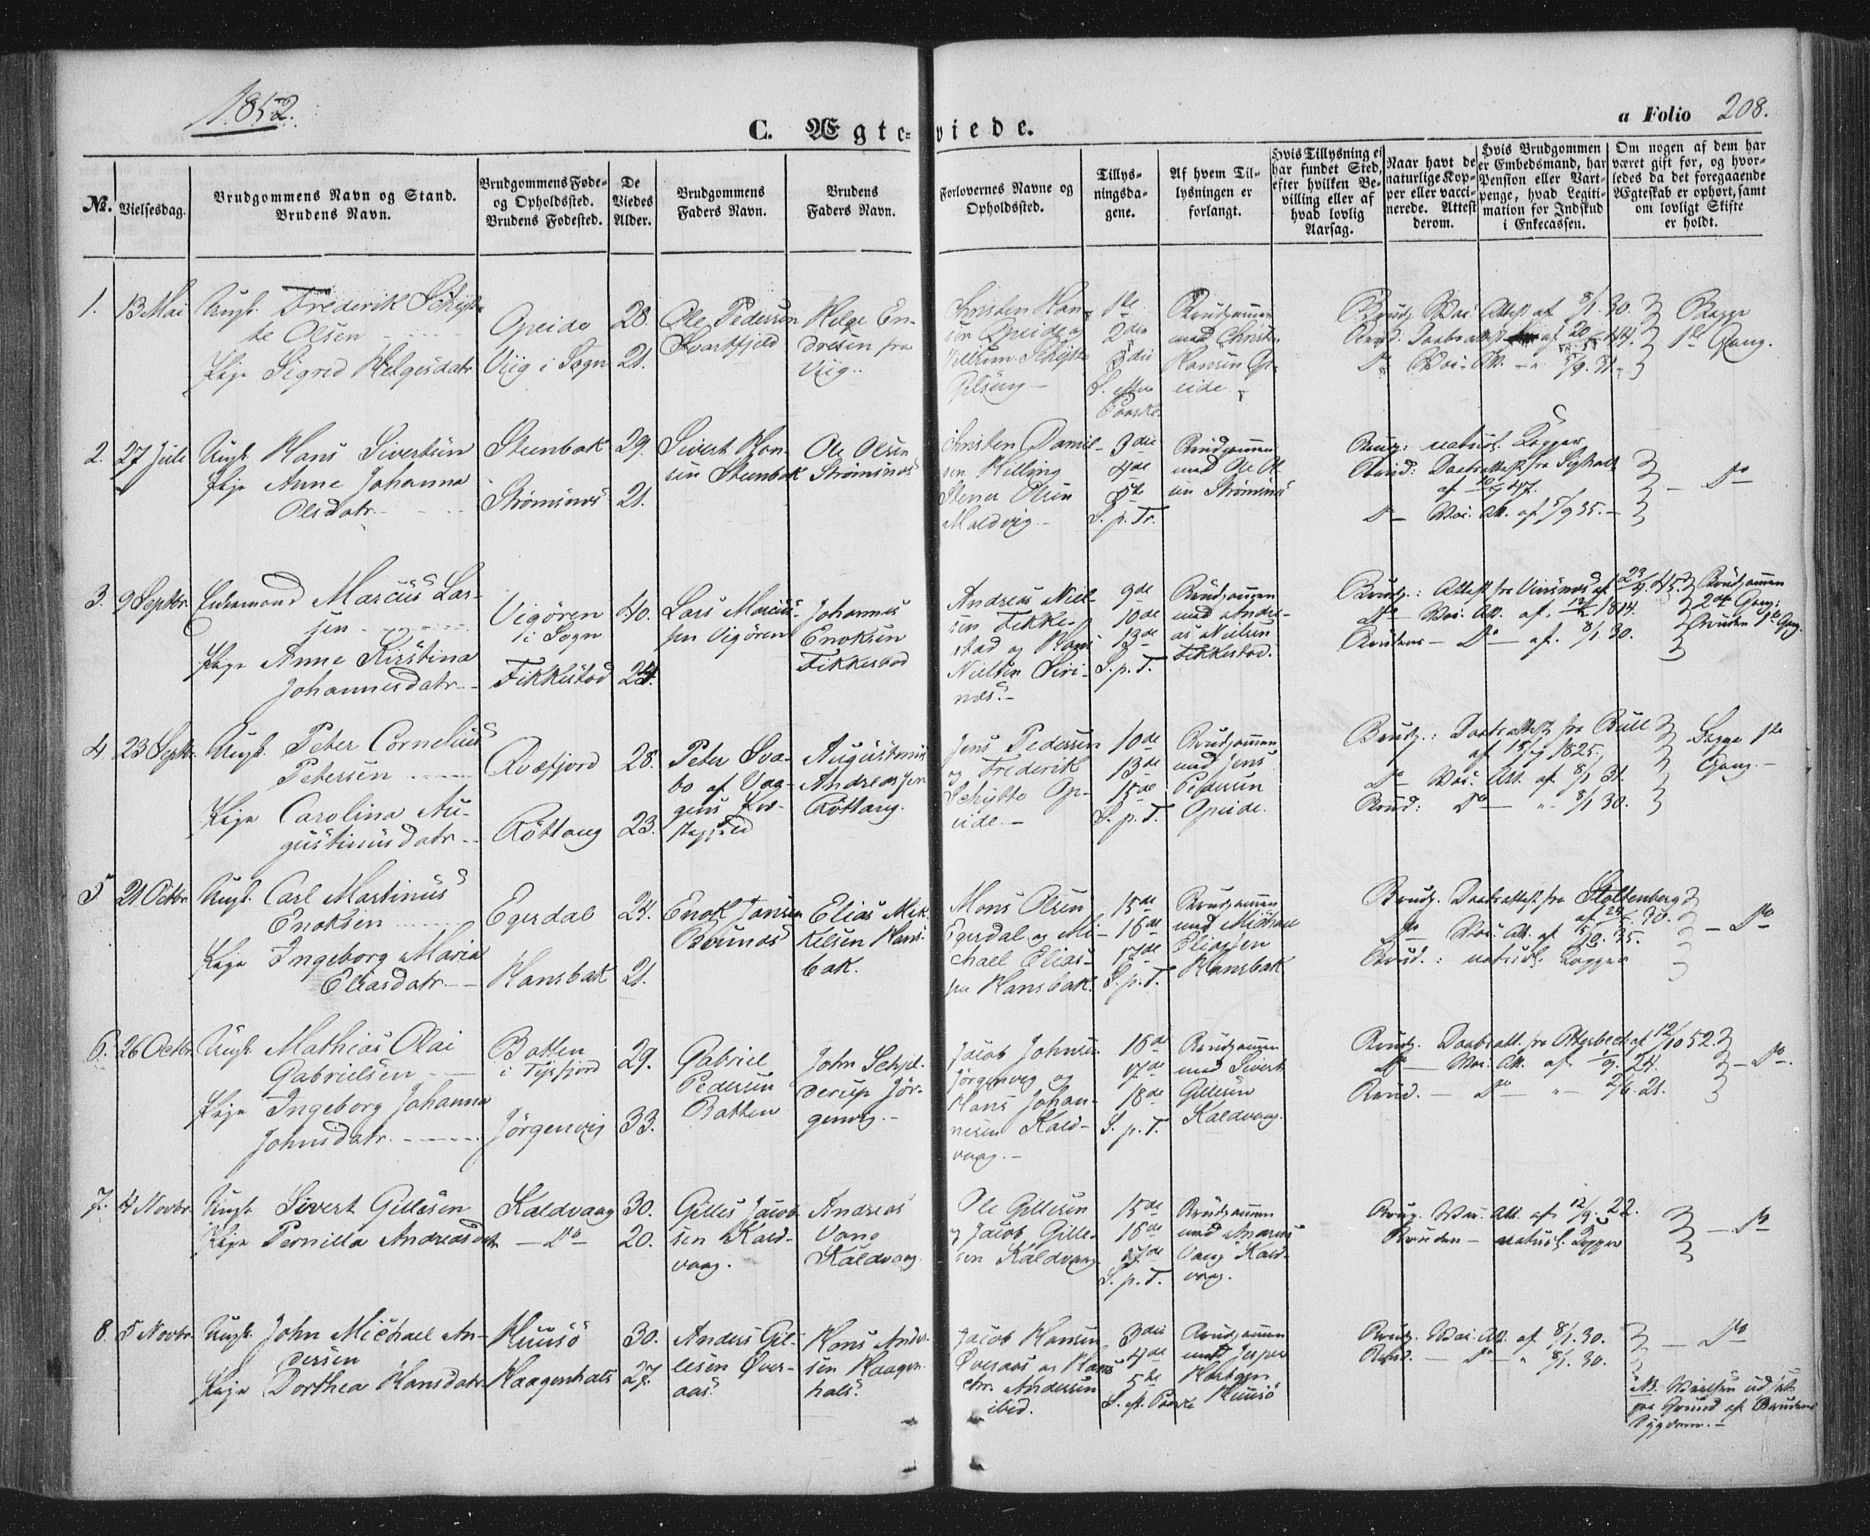 1852.
C. Ægteviede.
a Folio 208.
No.
Vielsesdag.
Brudgommens Navn og Stand.
Brudens Navn.
Brudgommens Føde-
og Opholdssted.
Brudens Fødested.
De
Viedes
Alder.
Brudgommens
Faders Navn.
Brudens
Faders Navn.
Forlovernes Navne og
Opholdssted.
Tillys-
ningsda-
gene.
Af hvem Til-
lysningen er
forlangt.
Hvis Tillysning ei
har fundet Sted,
efter hvilken Be-
villing eller af
hvad lovlig
Aarsag.
Naar havt de
naturlige Kop-
per eller vacci-
nerede. Attest
derom.
Hvis Brudgommen
er Embedsmand, har
Pension eller Vart-
penge, hvad Legiti-
mation for Indskud
i Enkecassen.
Om nogen af dem har
været gift før, og hvor-
ledes da det foregaaende
Ægteskab er ophørt, samt
om lovligt Skifte
er holdt.
1. 13 Mai Ungk. Frederik Schjøt-
te Olsen
Pige Sigrid Helgesdatr
Opeide
Viig i Sogn
28.
21.
Ole Pedersen
Svartfjeld
Helge En-
dresen fra
Viig.
Christen Han-
sen Opeide og
Villum Schjøtte
1ste
2den
3die
S. efter
Paaske
Brudgommen
med Christen
Hansen Op-
eide.
Brudg. Vac. Attest af 8/1 30.
Do Vac. Att. 5/9 31.
Begge
1ste Gang.
2. 27 Juli Ungk. Hans Sivertsen
Pige Anne Johanna
Olsdatr
Steenbak
Strømsnes
29.
21.
Sivert Han-
sen Steenbak
Ole Olsen
Strømsnes
Christen Daniel-
sen Hilling
Stener Olsen
Maldvig
3die
4de
5te
S. p. Tr.
Brudgommen
med Ole Ol-
sen Strømsnes
Brudg: naturl. Kopper
Do Vac. Att. af 5/9 35.
Do
3. 9 Septbr. Enkemand Marcus Lar-
sen
Pige Anne Kirstina
Johannesdatr
Vigøren
i Sogn
Fikkestad
40.
24.
Lars Marcus-
sen Vigøren
Johannes
Enoksen
Fikkestad
Andreas Niel-
sen Fikke-
stad og Hans
Nielsen Siri-
næs.
9de
10de
13de
S. p. T.
Brudgommen
med Andre-
as Nielsen
Fikkestad.
Do Vac. Att. af 1814.
Brudens Do af 8/1 30.
Brudgommen
2den Gang;
Bruden 1ste Gang.
4. 23 Septbr. Ungk. Peter Cornelius
Petersen
Pige Carolina Au-
gustinusdatr
Qvæfjord
Røttang
28.
23.
Peter Sva-
bo af Vaa-
gens
Augustinus
Andreassen
Røttang.
Jens Pedersen
og Frederik
Schjøtte Op-
eide.
10de
13de
15de
S. p. T.
Brudgommen
med Jens
Pedersen
Opeide.
Brudg.: Daabsattest fra Bull
af 15/7 1825,
Do Vac. Att. af 8/1 31.
Brud: Do " 8/1 30.
Begge 1ste
Gang.
5. 21 Octbr. Ungk. Carl Martinus
Enoksen
Pige Ingeborg Maria
Eliasdatr
Egerdal
Hansbak
24.
21.
Enok Jansen
Elias Mik-
kelsen Hans-
bak.
Mons Olsen
Egerdal og Mi-
chael Elias-
sen Hansbak.
15de
16de
17de
S. p. T.
Brudgommen
med Michael
Eliassen
Hansbak
Brudg. Daabsattest fra Stoltenberg
Do Vac. Att. af 35.
Brud.: naturl. Kopper
Do
6. 26 Octbr. Ungk. Mathias Olai
Gabrielsen
Pige Ingeborg Johanna
Johnsdatr
Botten
i Tysfjord
Jørgenvig
29.
33.
Gabriel
Pedersen
Botten
John Schjel-
derup Jør-
genvig
Jacob Johnsen
Jørgenvig og
Hans Johan-
nesen Kald-
vaag.
16de
17de
18de
S. p. T.
Brudgommen
med Sivert
Gillesen
Kaldvaag.
Brudg. Daabsatt. fra Otterbech af 12/10 52.
Do Vac. Att. af 1/9. 24.
Brud. Do " 2/6. 21.
Do
7. 4 Novbr. Ungk. Sivert Gillesen
Pige Pernilla Andreasdatr
Kaldvaag
Do
30.
20.
Gilles Jacob-
sen Kald-
vaag.
Andreas
Vang
Kaldvaag.
Ole Gillesen
og Jacob Gille-
sen Kaldvaag
15de
16de
17de
S. p. T.
Brudgommen
med Andreas
Vang Kald-
vaag.
Brudg. Vac. Att. af 12/9. 22.
Bruden naturl. Kopper
Do
8. 5 Novbr. Ungk. John Michael An-
dersen
Pige Dorthea Hansdatr
Huusø
Haagenhals
30.
27.
Anders Gil-
lesen Øver-
aas.
Hans Ander-
sen Haagen-
hals.
Jacob Hansen
Øveraas og Hans
Chr. Andersen
ibid.
3die
4de
5te
S. ef. Paaske
Brudgommen
med Jesper
Huusø
Brudg. Vac. Att. af 8/1. 30.
Brud. Do " 8/1. 30.
Do
NB. Vielsen udsat
paa Grund af Brudens
Sygdom.